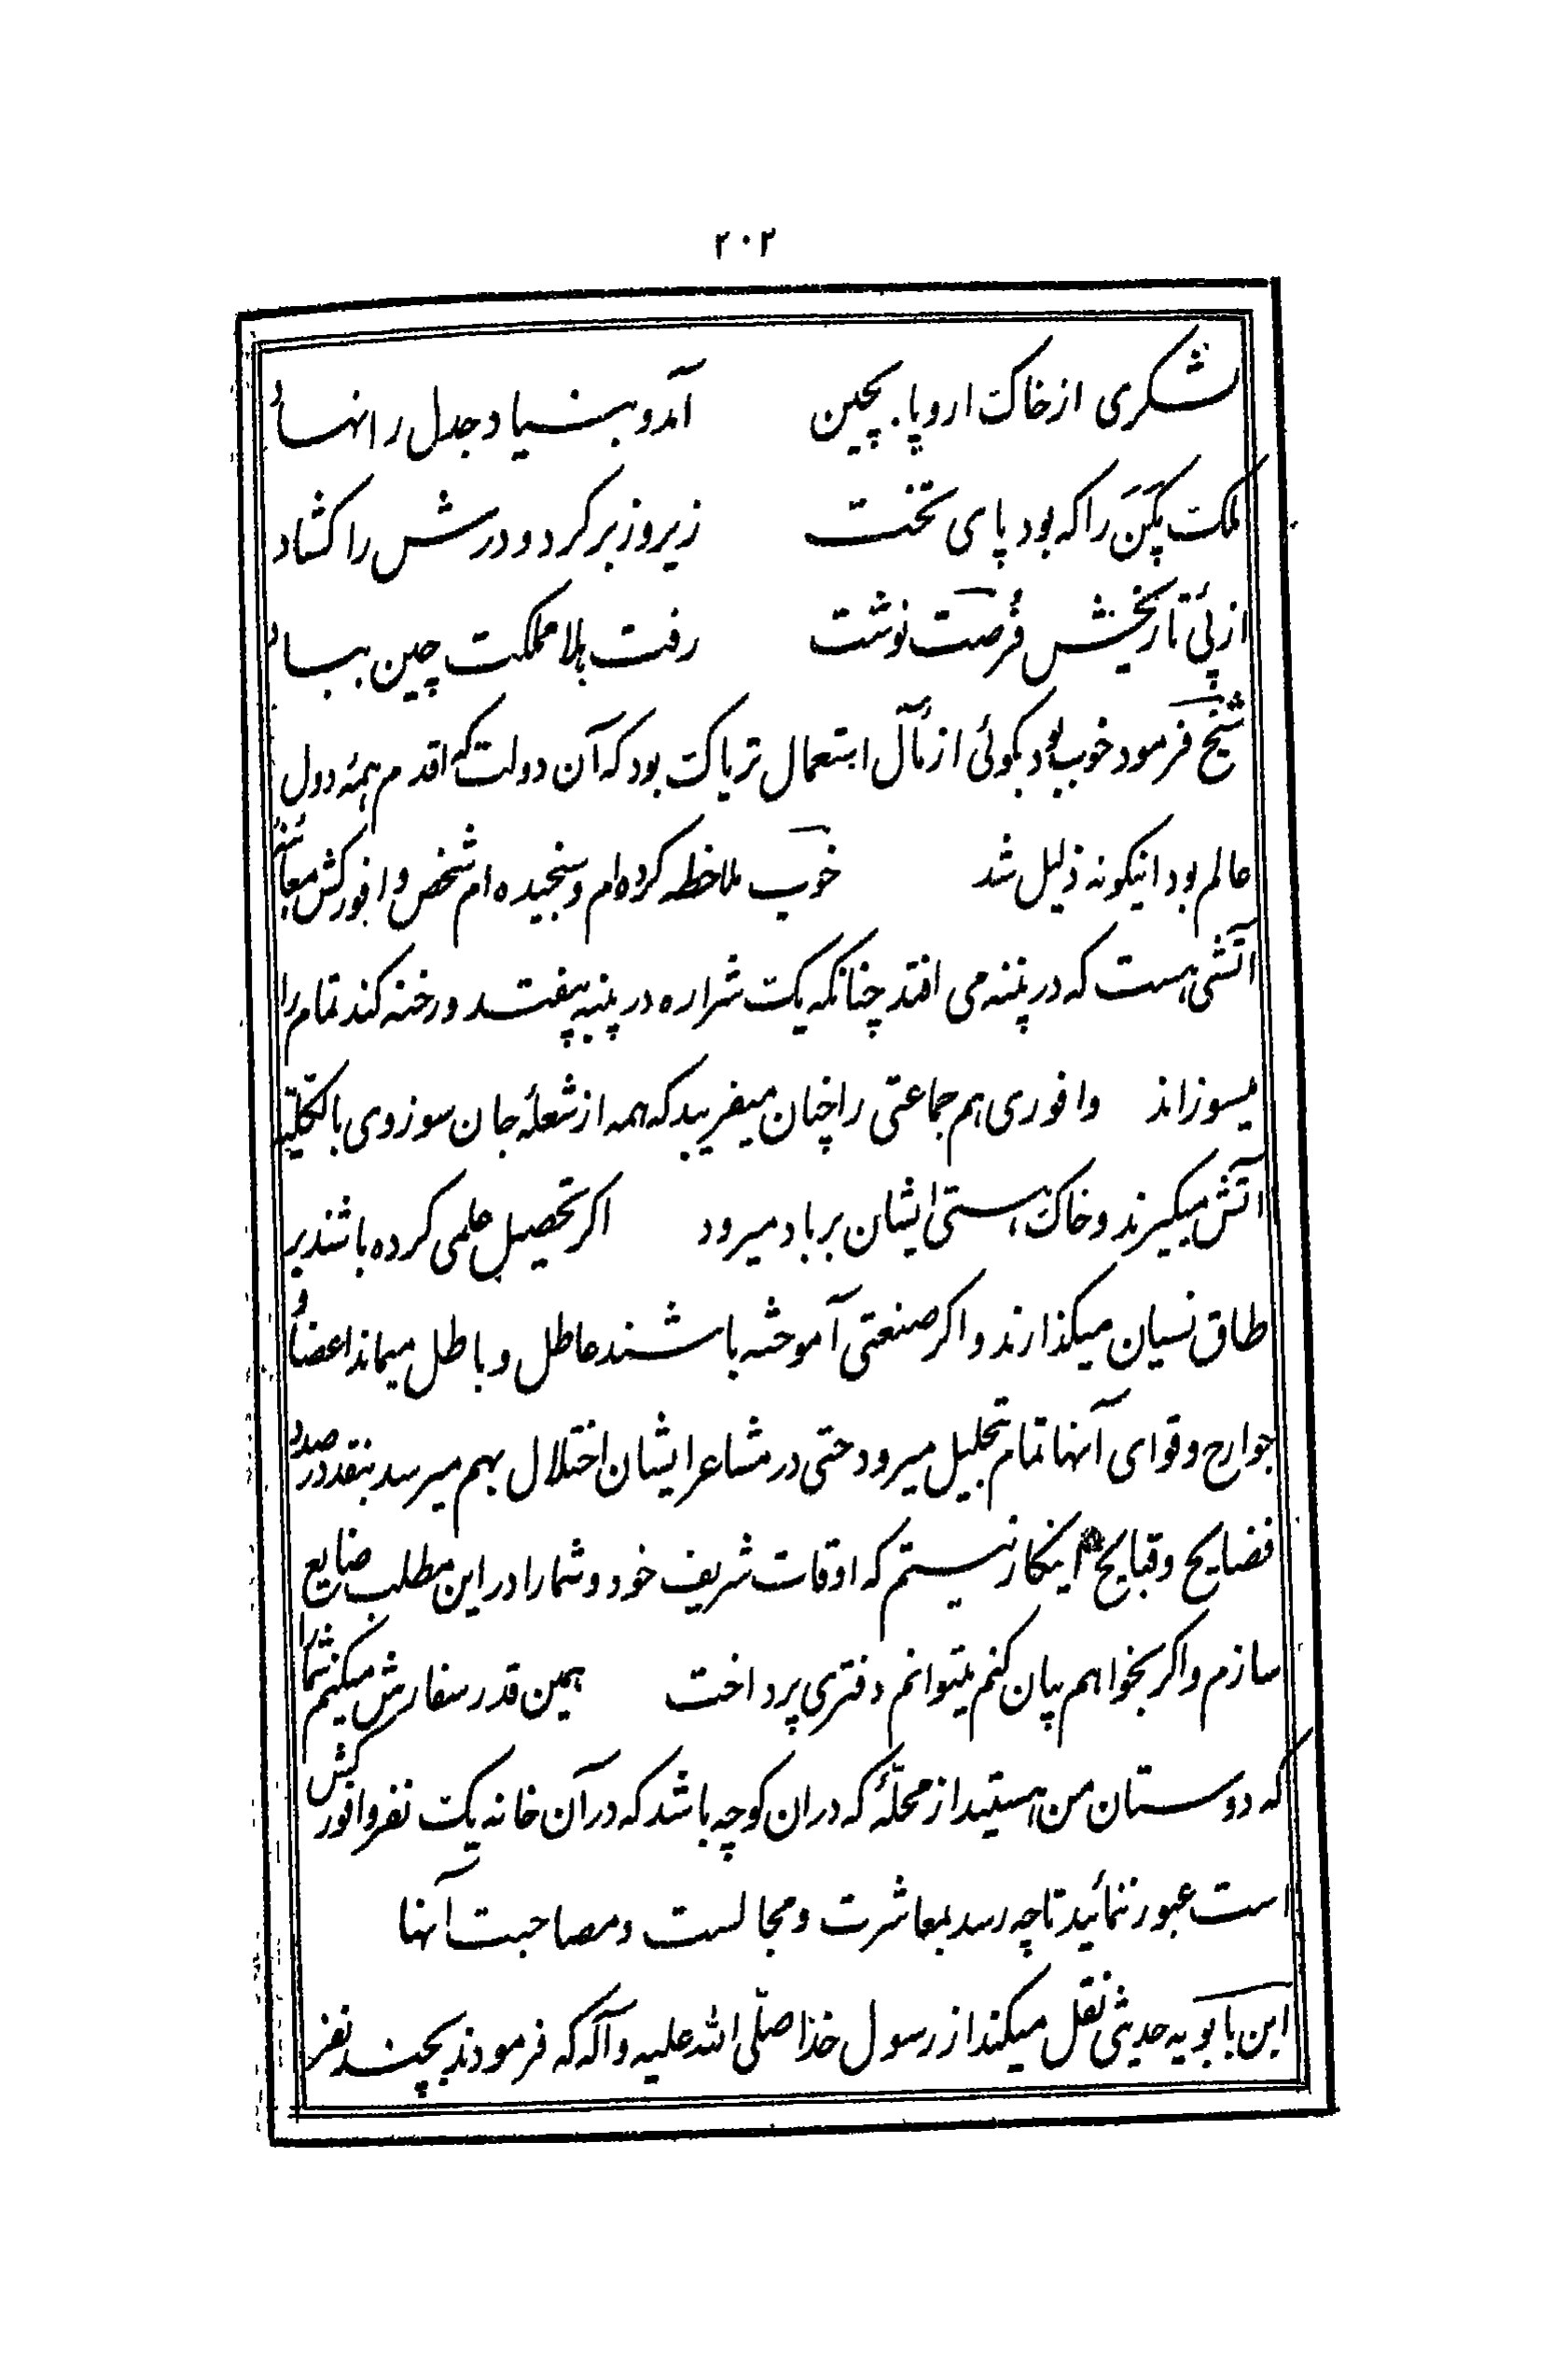 ۲۰۲
لشکری از خاک اروپا بچین آمد و بنیاد جدل را نهاد
ملک پکن را که بود پای تخت زیر و زبر کرد و درش را کشاد
از پئی تاریخش فرصت نوشت رفت بلا مملکت چین بباد
شیخ فرمود خوب بود بکوئی از مآل استعمال تریاک بود که آن دولت که اقدم همهٔ دول
عالم بود اینکونه ذلیل شد خوب ملاحظه کرده‌ام و سنجیده ام شخص وافورکش
آتشی است که در پنبه می افتد چنانکه یک شراره در پنبه بیفتد و رخنه کند تمام را
میسوزاند وافوری هم جماعتی را چنان میفریبد که همه از شعلهٔ جان سوز وی بالکلیه
آتش میکیرند و خاک هستی ایشان بر باد میرود اکر تحصیل علمی کرده باشند بر
طاق نسیان میکذارند و اکر صنعتی آموخته باشند عاطل و باطل میماند اعضا و
جوارح و قوای آنها تمام تحلیل میرود حتی در مشاعر ایشان اختلال بهم میرسد بنقد در صدد
فضایح و قبایح اینکار نیستم که اوقات شریف خود و شما را در این مطلب ضایع
سازم و اکر بخواهم بیان کنم میتوانم دفتری پرداخت همین قدر سفارش میکنم شما را
که دوستان من هستید از محلهٔ که در ان کوچه باشد که در آن خانه یک نفر وافور کش
است عبور ننمائید تا چه رسد بمعاشرت و مجالست و مصاحبت آنها
ابن بابویه حدیثی نقل میکند از رسول خدا صلّی الله علیه و آله که فرمودند بچند نفر